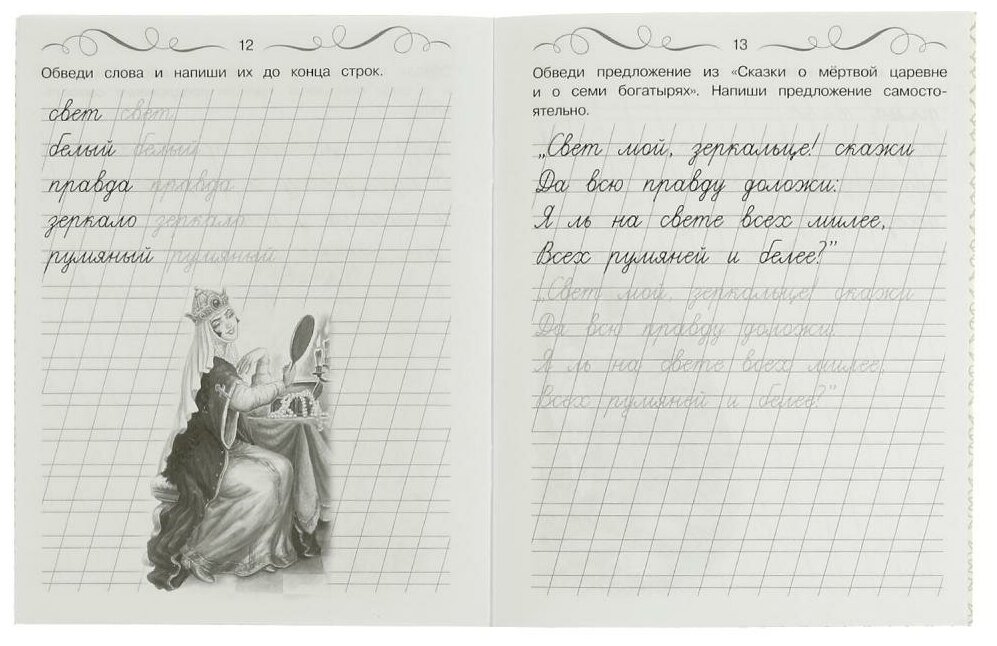 12
Обведи слова и напиши их до конца строк.
свет свет
белый белый
правда правда
зеркало зеркало
румяный румяный
13
Обведи предложение из «Сказки о мёртвой царевне
и о семи богатырях». Напиши предложение самосто-
ятельно.
„Свет мой, зеркальце! скажи
Да всю правду доложи:
Я ль на свете всех милее,
Всех румяней и белее?”
„Свет мой, зеркальце! скажи
Да всю правду доложи:
Я ль на свете всех милее,
Всех румяней и белее?”